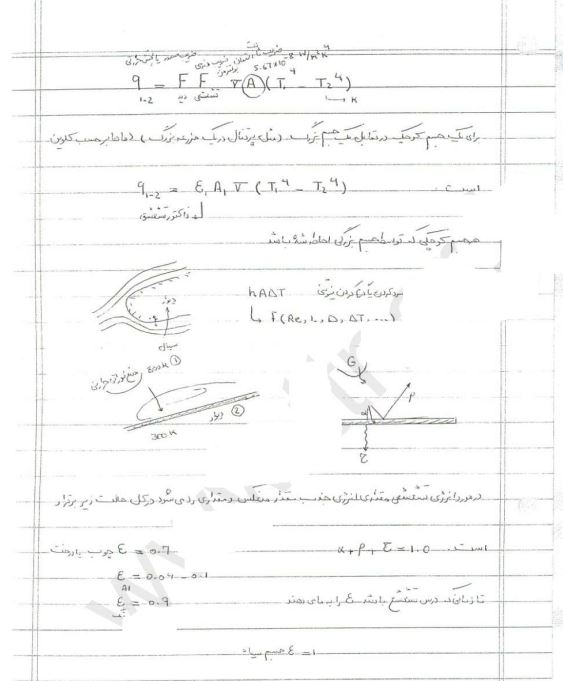 ضریب تابش استفان بولتزمن
5.67×10⁻⁸ W/m²K⁴
q₁₋₂ = F F σ A (T₁⁴ − T₂⁴)
دید تشعشعی
K
برای یک جسم کوچک در مقابل یک جسم بزرگ (مثل پرتقال در یک مزرعه بزرگ) (دماها برحسب کلوین
است.
q₁₋₂ = ε₁ A₁ σ (T₁⁴ − T₂⁴)
فاکتور تشعشع
جسم کوچکی که توسط جسم بزرگی احاطه شده باشد
hAΔT سرد کردن یا گرم کردن
f(Re, L, D, ΔT, ...)
دیوار
سیال
800 K ①
دیوار ②
300 K
G
ρ
α
τ
در مورد انرژی تشعشعی مقداری انرژی جذب مقداری منعکس و مقداری رد می شود در کل حالت زیر برقرار
است. α + ρ + τ = 1.0
ε = 0.7 چوب یا درخت
ε = 0.04 - 0.1
Al
ε = 0.9
تا زمانی که درس تشعشع باشد ε را به ما می دهند
ε = 1 جسم سیاه